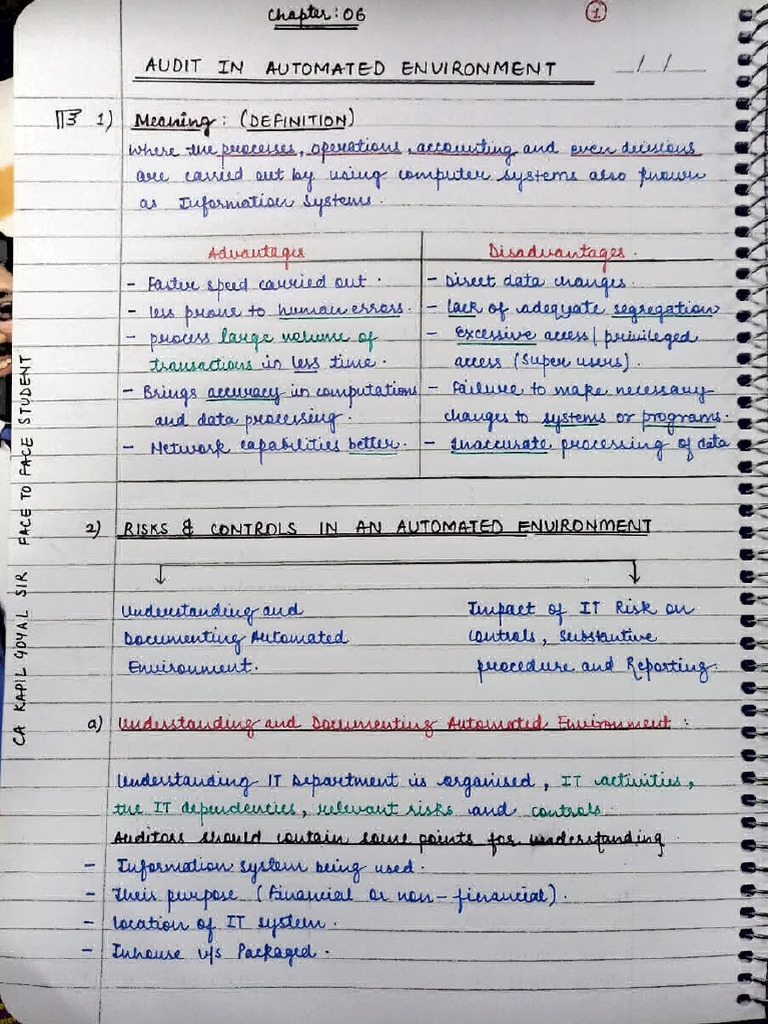 Chapter: 06
1
AUDIT IN AUTOMATED ENVIRONMENT
/ /
1) Meaning: (DEFINITION)
where the processes, operations, accounting and even decisions
are carried out by using computer systems also known
as Information Systems.
Advantages
- Faster speed carried out.
- less prone to human errors.
- process large volume of
transactions in less time.
- Brings accuracy in computations
and data processing.
- Network capabilities better.
Disadvantages.
- Direct data changes.
- Lack of adequate segregation
- Excessive access/privileged
access (Super users).
- Failure to make necessary
changes to systems or programs.
- Inaccurate processing of data
2) RISKS & CONTROLS IN AN AUTOMATED ENVIRONMENT
Understanding and
Documenting Automated
Environment.
Impact of IT Risk on
controls, substantive
procedure and Reporting.
a) Understanding and Documenting Automated Environment:
Understanding IT Department is organised, IT activities,
the IT dependencies, relevant risks and controls.
Auditors should contain some points for understanding
- Information system being used.
- Their purpose (Financial or non-financial).
- Location of IT system.
- Inhouse v/s Packaged.
CA KAPIL GOYAL SIR FACE TO FACE STUDENT